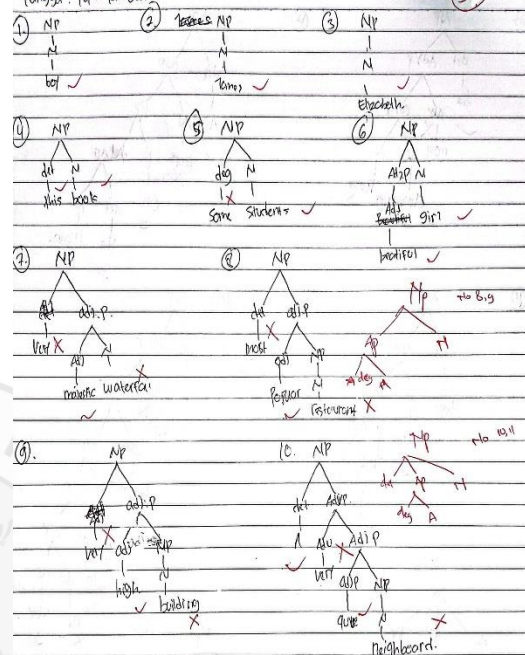 1. NP
N
boy
2 NP
N
James
3 NP
N
Elizabeth
4 NP
det N
this book
5 NP
deg N
Some Students
6 NP
AdjP N
Adj girl
beatiful
7. NP
adj.P.
Very Adj N
majastic waterfal
8 NP
det adj.P
most adj NP
Popular N
restaurant
NP No 8,9
AP N
deg A
9. NP
adj.P
very adj NP
high N
building
10. NP
det AdvP.
A Adv AdjP
very adjP NP
quite N
neighboard.
NP No 10,11
det AP N
deg A